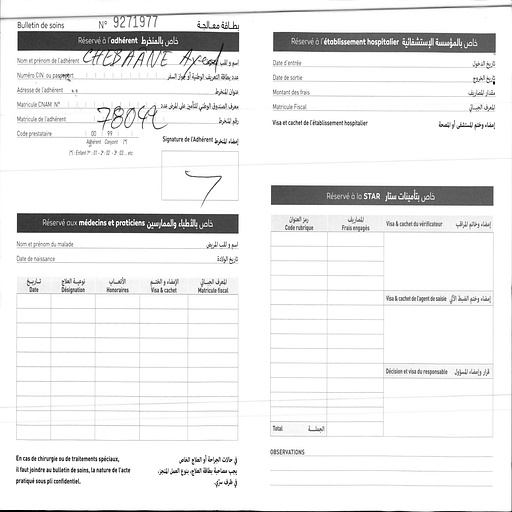 Bulletin de soins N° 9271977 بطاقة معالجة
Réservé à l'adhérent خاص بالمنخرط
Nom et prénom de l'adhérent CHEBAANE Ayed اسم و لقب المنخرط
Numéro CIN ou passeport عدد بطاقة التعريف الوطنية أو جواز السفر
Adresse de l'adhérent عنوان المنخرط
Matricule CNAM N° معرف الصندوق الوطني للتأمين على المرض عدد
Matricule de l'adhérent 78042 رقم المنخرط
Code prestataire 00 99
Adhérent Conjoint (*)
(*) : Enfant 1er : 01 - 2 : 02 - 3 : 03 ... etc
Signature de l'Adhérent إمضاء المنخرط
Réservé aux médecins et praticiens خاص بالأطباء والممارسين
Nom et prénom du malade اسم و لقب المريض
Date de naissance تاريخ الولادة
تاريخ نوعية العلاج الأتعاب الإمضاء و الختم المعرف الجبائي
Date Désignation Honoraires Visa & cachet Matricule fiscal
En cas de chirurgie ou de traitements spéciaux,
il faut joindre au bulletin de soins, la nature de l'acte
pratiqué sous pli confidentiel.
في حالات الجراحة أو العلاج الخاص
يجب مصاحبة بطاقة العلاج، بنوع العمل المنجز،
في ظرف سرّي.
Réservé à l'établissement hospitalier خاص بالمؤسسة الإستشفائية
Date d'entrée تاريخ الدخول
Date de sortie تاريخ الخروج
Montant des frais مقدار المصاريف
Matricule Fiscal المعرف الجبائي
Visa et cachet de l'établissement hospitalier إمضاء وختم المستشفى أو المصحة
Réservé à la STAR خاص بتأمينات ستار
رمز العنوان المصاريف
Code rubrique Frais engagés
Visa & cachet du vérificateur إمضاء وخاتم المراقب
Visa & cachet de l'agent de saisie إمضاء وختم الضبط الآلي
Décision et visa du responsable قرار وإمضاء المسؤول
Total الجملة
OBSERVATIONS